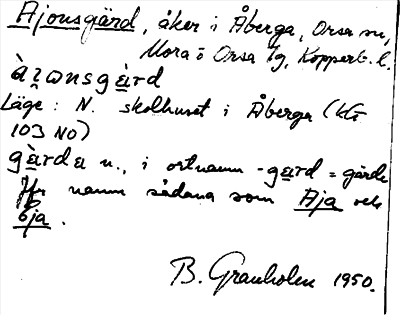 Ajonsgärd, åker i Åberga, Orsa sn,
Mora o Orsa tg, Kopparb. l.
Läge: N. skolhuset i Åberga (kbl
103 NO)
gärda n., i ortnamn -gärd = gärde
Jfr namn sådana som Aja och
Öja.
B. Granholm 1950.